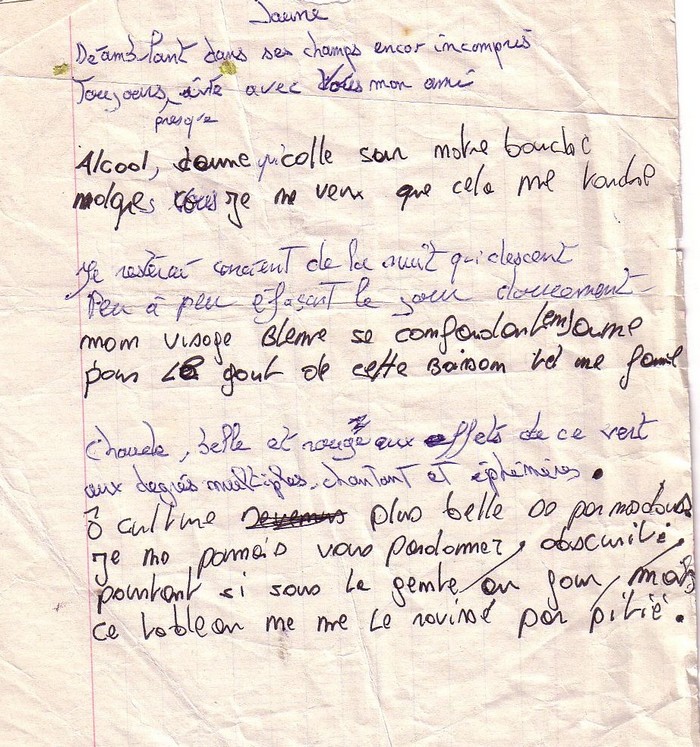 Jaune
Déambulant dans ses champs encor incompris
Toujours, ivre avec Vous mon ami
presque
Alcool, donne qui colle sur notre bouche
malgres vous je ne veux que cela me touche
Je resterai concient de la nuit qui descent
Peu à peu éfaçant le jour doucement
mon visage Bleme se confondant (en) Jaune
pour le gout de cette Boisson
Chaude, belle et rouge aux effets de ce vert
aux degrés multiples, chantant et éphémères.
ô culture Devenus plus belle
Je ne pourrais vous pardonner, obscurité,
pourtant si sous le gente un jour, mais
ce tableau ne me le ravissé par pitié.